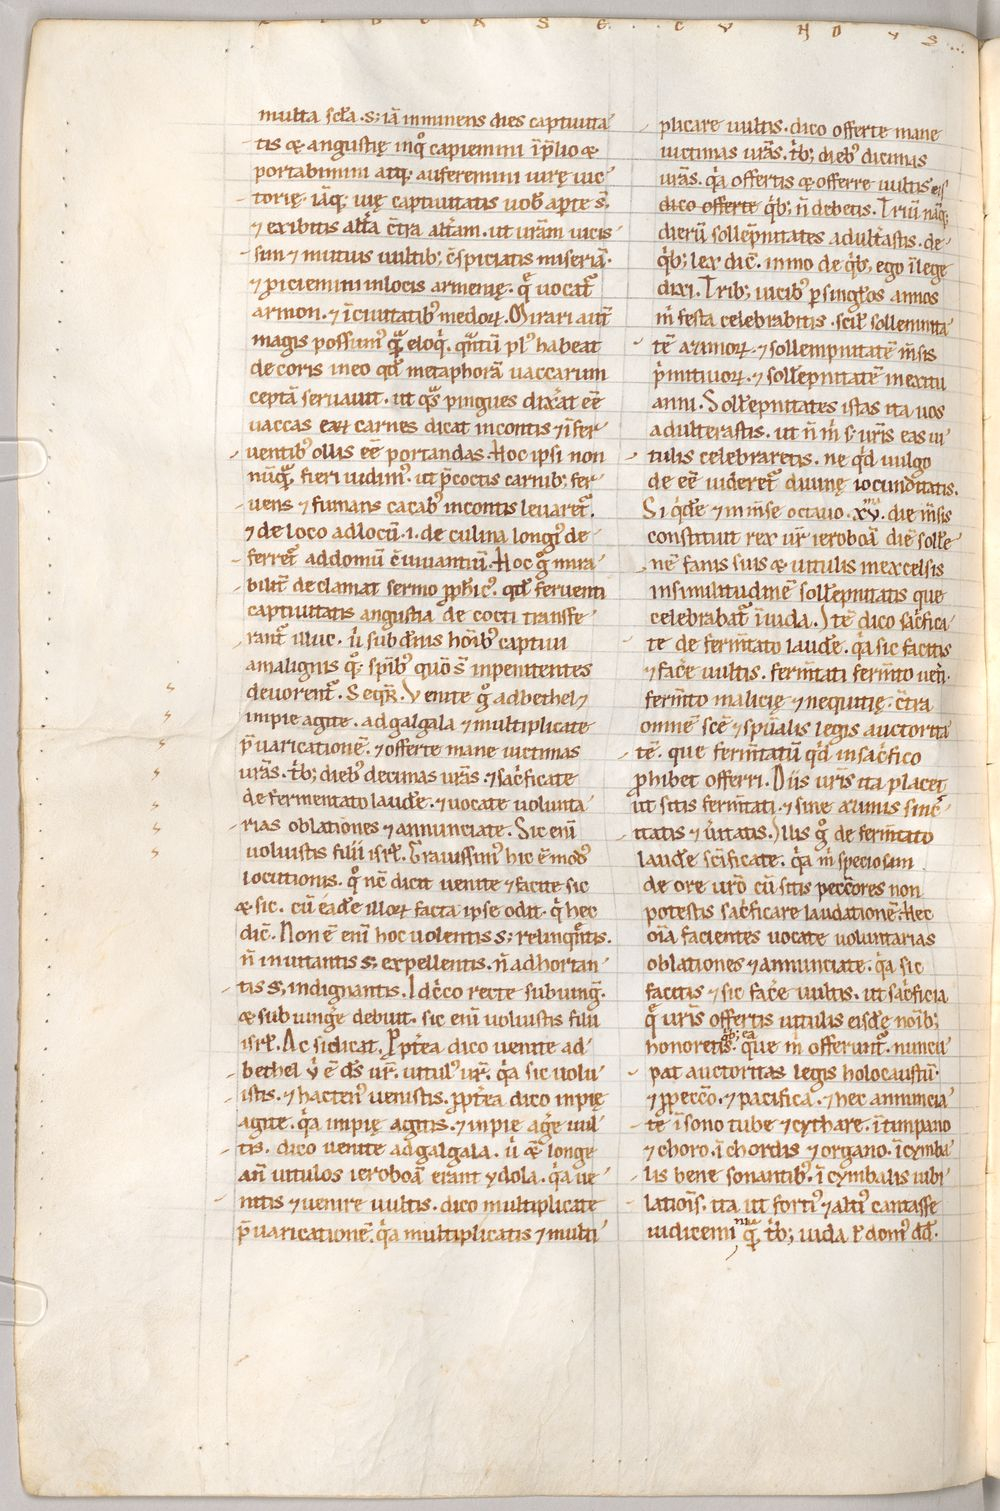 LIBER SECUNDUS
multa scła · s; iā imminens dies captiuita
tis & angustię inq° capiemini ī p̄lio &
portabimini atq; auferemini uirę uic
torię · itaq; uię captiuitatis uob̄ apte s̄;
⁊ exibitis altā c̄tra altam · ut urām uicis
sim ⁊ mutuis uultib; c̄spiciatis miseriā ·
⁊ piciemini in locis armenię · q̄ uocat᷑
armon · ⁊ ī ciuitatib᷒ medoꝝ · Mirari aut̄
magis possum᷒ quā eloq̇ · quantū pl᷒ habeat
decoris in eo qđ metaphorā uaccarum
ceptā seruauit · ut q̄s pingues dixerat eē
uaccas eaꝝ carnes dicat in contis ⁊ ī fer
uentib᷒ ollis eē portandas · Hoc ipsi non
nūquā fieri uidim᷒ · ut p̄coctis carnib; fer
uens ⁊ fumans cacab᷒ in contis leuaret᷑ ·
⁊ de loco ad locū · i · de culina longi᷒ de
ferret᷑ ad domū c̄uiuantiū · Hoc g° mira
bilit̄ declamat sermo ꝓphic᷒ · qđ feruenti
captiuitatis angustia decocti transfe
rant᷑ illuc · u̇ sub dn̄is hoīb᷒ captiui
a malignis q°; sp̄ib᷒ quos s̄ inpenitentes
deuorent᷑ · Seqr̄ · Venite g° ad bethel ⁊
impie agite · ad galgala ⁊ multiplicate
p̄uaricationē · ⁊ offerte mane uictimas
urās · t̓b; dieb᷒ decimas urās · ⁊ sac̓ficate
de fermentato laudē · ⁊ uocate volunta
rias oblationes ⁊ annunciate · Sic enī
uoluistis filii isrł · Grauissim᷒ hic ē mod᷒
locutionis · q° nc̄ dicit uenite ⁊ facite sic
& sic · cū eadē illoꝝ facta ipse odit · q̇ hec
dic̄ · Non ē enī hoc uolentis s; relinquētis ·
n̄ inuitantis s; expellentis · n̄ adhortan
tis s; indignantis · Idc̓co recte subiung̃ ·
& subiungere debuit · sic enī uoluistis filii
isrł · Ac si dicat · Ꝓpterea dico uenite ad
bethel u̇ ē ds̄ ur̄ · uitul᷒ ur̄ · q̓a sic uolu
istis · ⁊ hacten᷒ uenistis · ꝓpterea dico inpię
agite · q̓a impię agitis · ⁊ inpie agere uul
tis · dico uenite ad galgala · u̇ & longe
an̄ uitulos ieroboā erant ydola · q̓a ue
nitis ⁊ uenire uultis · dico multiplicate
p̄uaricationē · q̓a multiplicatis ⁊ multi
plicare uultis · dico offerte mane
uictimas urās · t̓b; dieb᷒ dicimas
urās · q̓a offertis & offerre uultis eis
dico offerte q̓b; n̄ debetis · Triū nāq;
dierū sollēpnitates adulterastis · de
q̓b; lex dic̄ · inmo de q̓b; ego ī lege
dixi · Trib; uicib᷒ p singulos annos
m̓ festa celebrabitis · scił sollemnita
tē azimoꝝ · ⁊ sollempnitatē m̄sis
p̓mitiuoꝝ · ⁊ sollēpnitatē in exitu
anni · Sollēpnitates istas ita uos
adulterastis · ut n̄ m̓ s; uris̄ eas ui
tulis celebraretis · ne q̓d uulgo
deeē uideret᷑ diuinę iocunditatis ·
Si q̓dē ⁊ in m̄se octauo · xv · die m̄sis
constituit rex ur̄ ieroboā diē solle
nē fanis suis & uitulis in excelsis
in similitudinē sollēpnitatis que
celebrabat᷑ ī iuda · Itē dico sac̓fica
te de ferm̄tato laudē · q̓a sic facitis
⁊ facere uultis · ferm̄tati ferm̄to uet̓i ·
ferm̄to malicię ⁊ nequitię · c̄tra
omnē scē ⁊ sp̄ualis legis auctorita
tē · que ferm̄tatū q̓d in sac̓fico
ꝓhibet offerri · Diis uris̄ ita placet
ut sitis ferm̄tati · ⁊ sine azimis sinc̄
itatis ⁊ u̓itatis · Illis g° de ferm̄tato
laudē sc̄ificate · q̓a m̓ speciosam
de ore uro̅ cū sitis peccōres non
potestis sac̓ficare laudationē · Hec
oīa facientes uocate uoluntarias
oblationes ⁊ annunciate · q̓a sic
facitis ⁊ sic facere uultis · ut sac̓ficia
q̄ uris̄ offertis uitulis eisdē noīb;
honoretis · q̓b; ea que m̓ offerunt᷑ · nuncu
pat auctoritas legis holocaustū ·
⁊ ꝓ pecc̄o · ⁊ pacifica · ⁊ hec annuncia
te ī sono tube ⁊ cythare · ī timpano
⁊ choro · ī chordis ⁊ organo · ī cymba
lis bene sonantib᷒ · ī cymbalis iubi
lationis̄ · ita ut forti᷒ ⁊ alti᷒ cantasse
uidicemini quā t̓b; iuda ł dom᷒ dd̄ ·